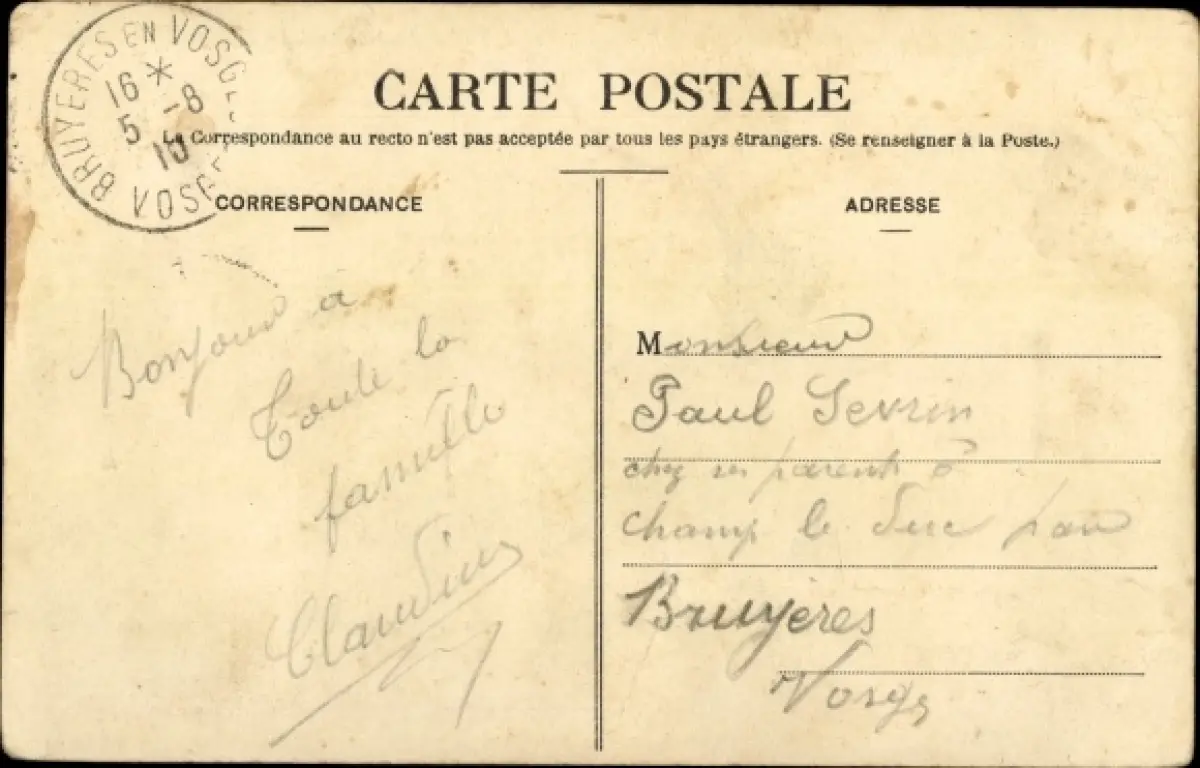 BRUYERES EN VOSGES
16 * 5 -8 10
VOSGES
CARTE POSTALE
La Correspondance au recto n'est pas acceptée par tous les pays étrangers. (Se renseigner à la Poste.)
CORRESPONDANCE
Bonjour à
Toute la
famille
Claudius
ADRESSE
Monsieur
Paul Sevrin
chez ses parents à
champ le Duc par
Bruyères
Vosges